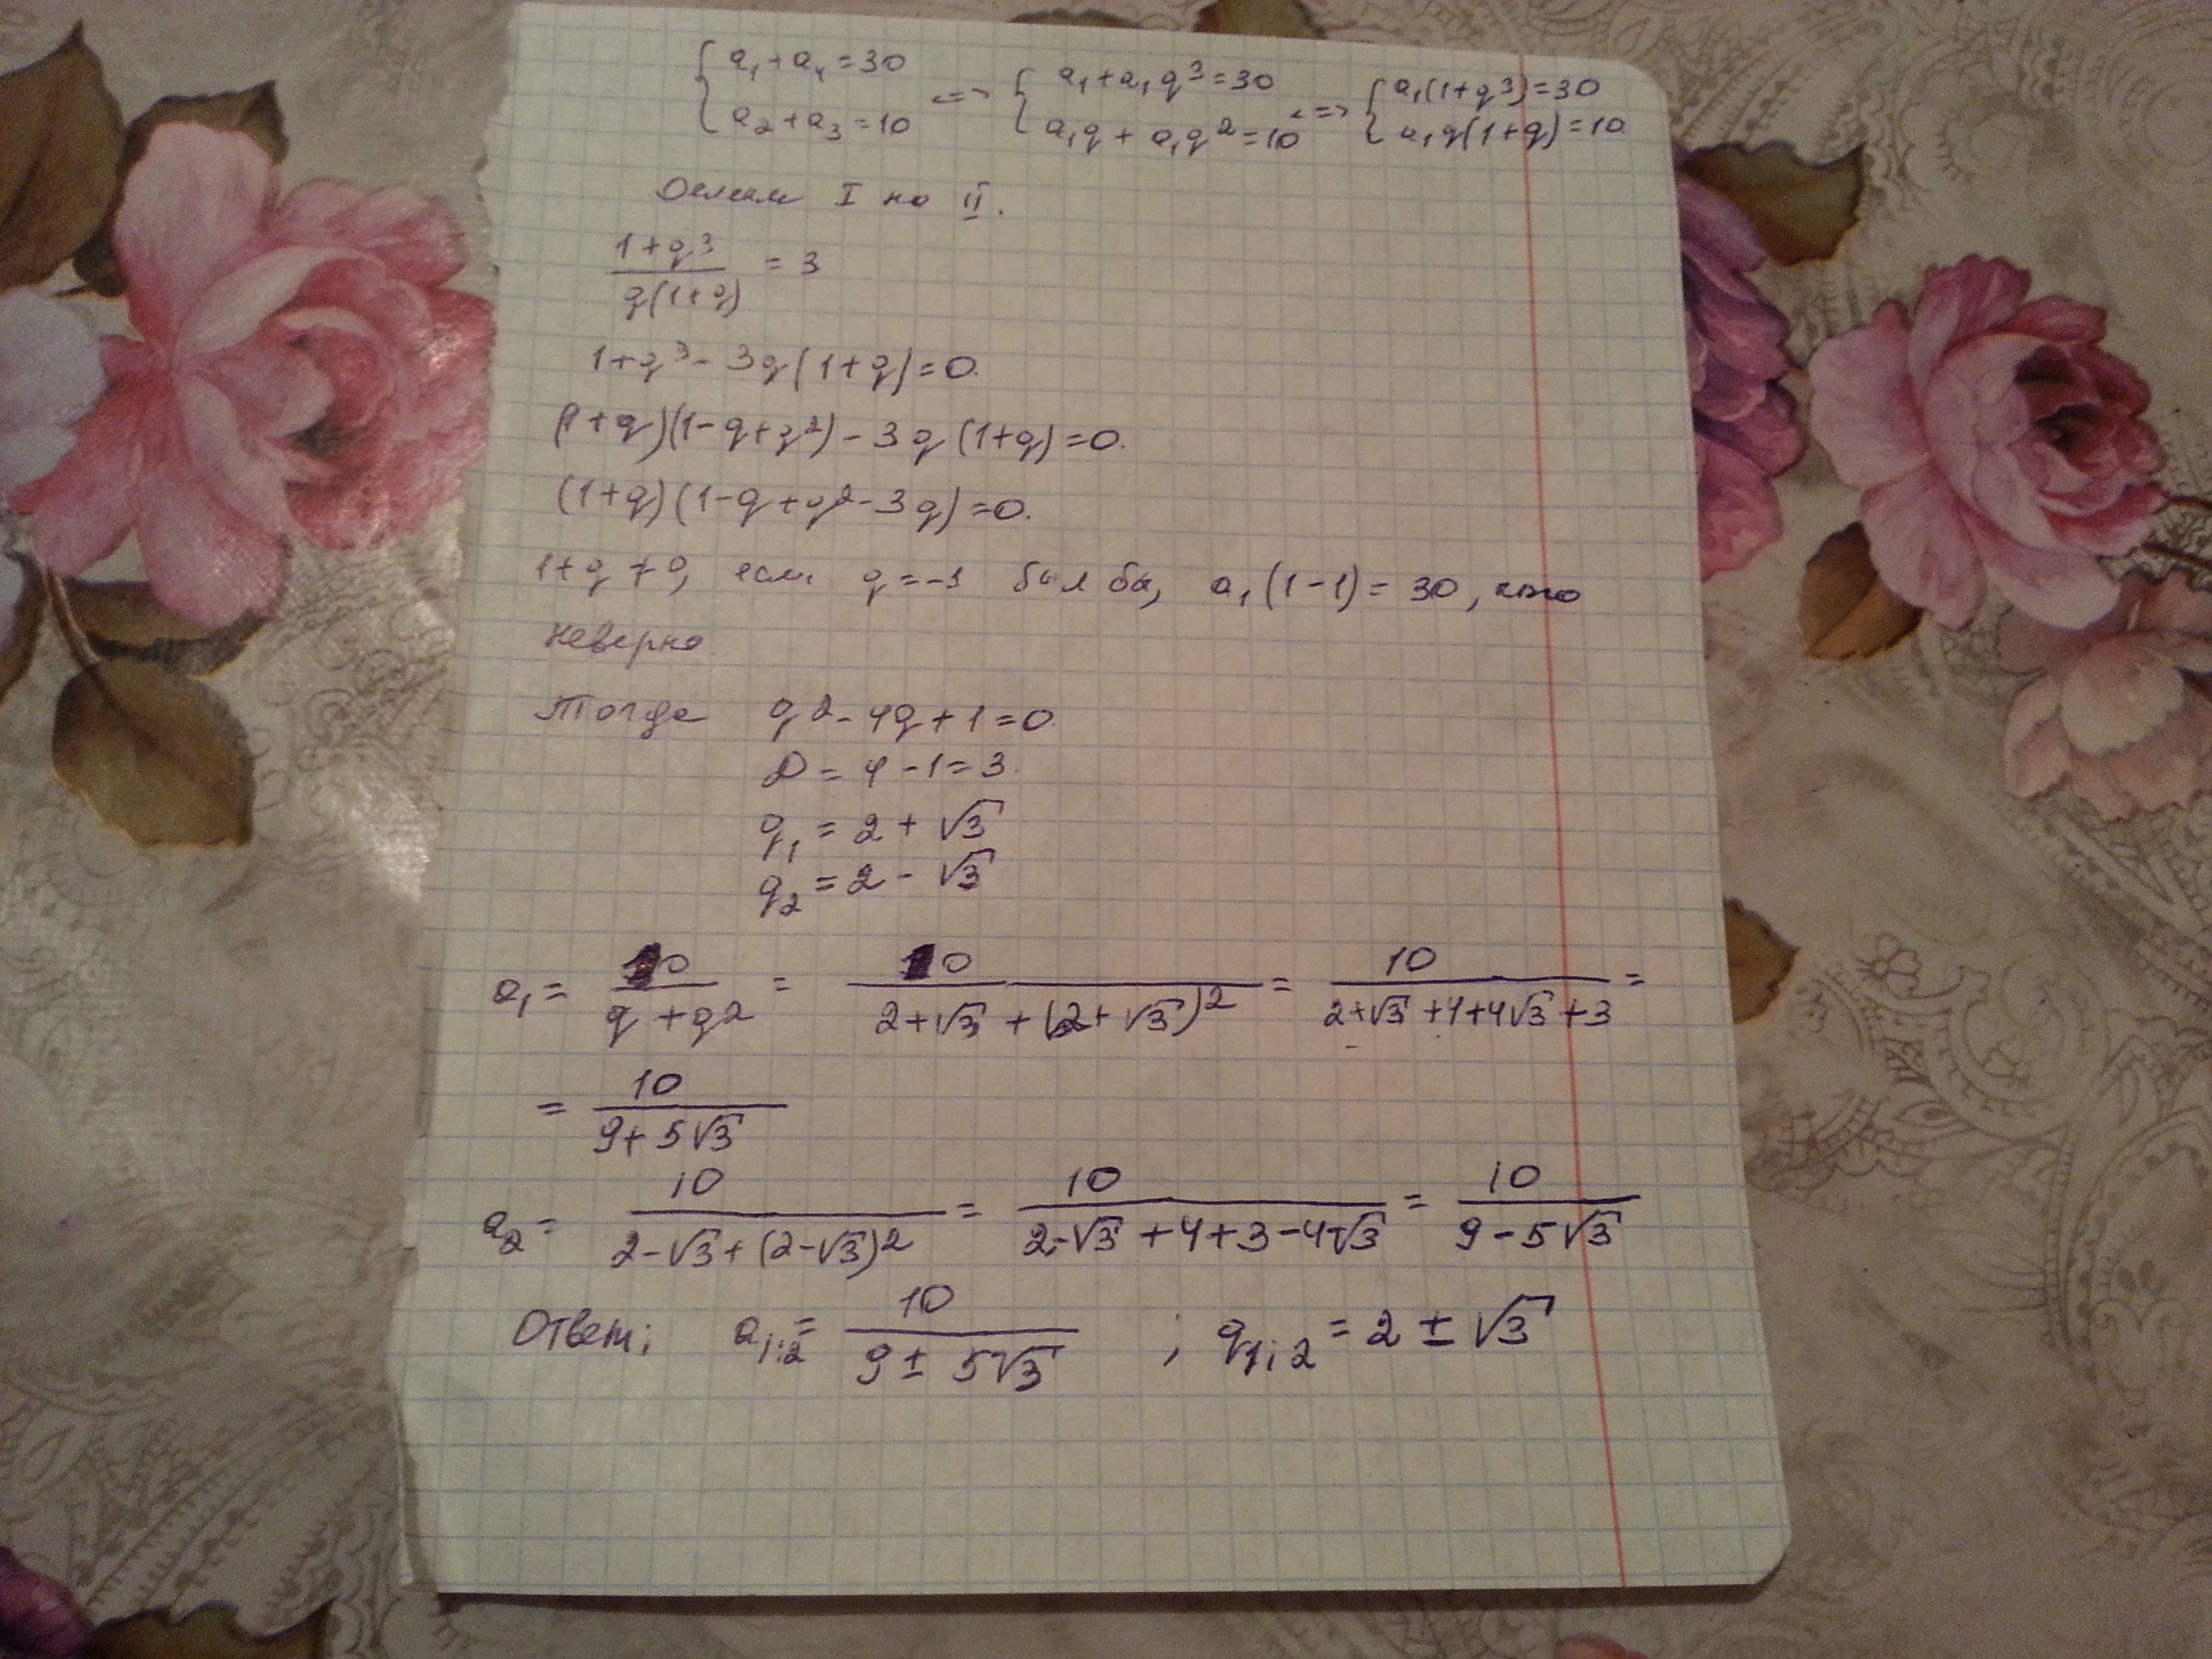 { a₁ + a₄ = 30 <=> { a₁ + a₁q³ = 30 <=> { a₁(1+q³) = 30
{ a₂ + a₃ = 10 { a₁q + a₁q² = 10 { a₁q(1+q) = 10
Делим I на II.
(1+q³)/(q(1+q)) = 3
1+q³ - 3q(1+q) = 0.
(1+q)(1-q+q²) - 3q(1+q) = 0.
(1+q)(1-q+q²-3q) = 0.
1+q ≠ 0, если q = -1 был бы, a₁(1-1) = 30,
неверно
Тогда q² - 4q + 1 = 0.
D = 4 - 1 = 3.
q₁ = 2 + √3
q₂ = 2 - √3
a₁ = 10/(q+q²) = 10/(2+√3+(2+√3)²) = 10/(2+√3+4+4√3+3) =
= 10/(9+5√3)
a₂ = 10/(2-√3+(2-√3)²) = 10/(2-√3+4+3-4√3) = 10/(9-5√3)
Ответ; a₁;₂ = 10/(9±5√3) ; q₁;₂ = 2 ± √3